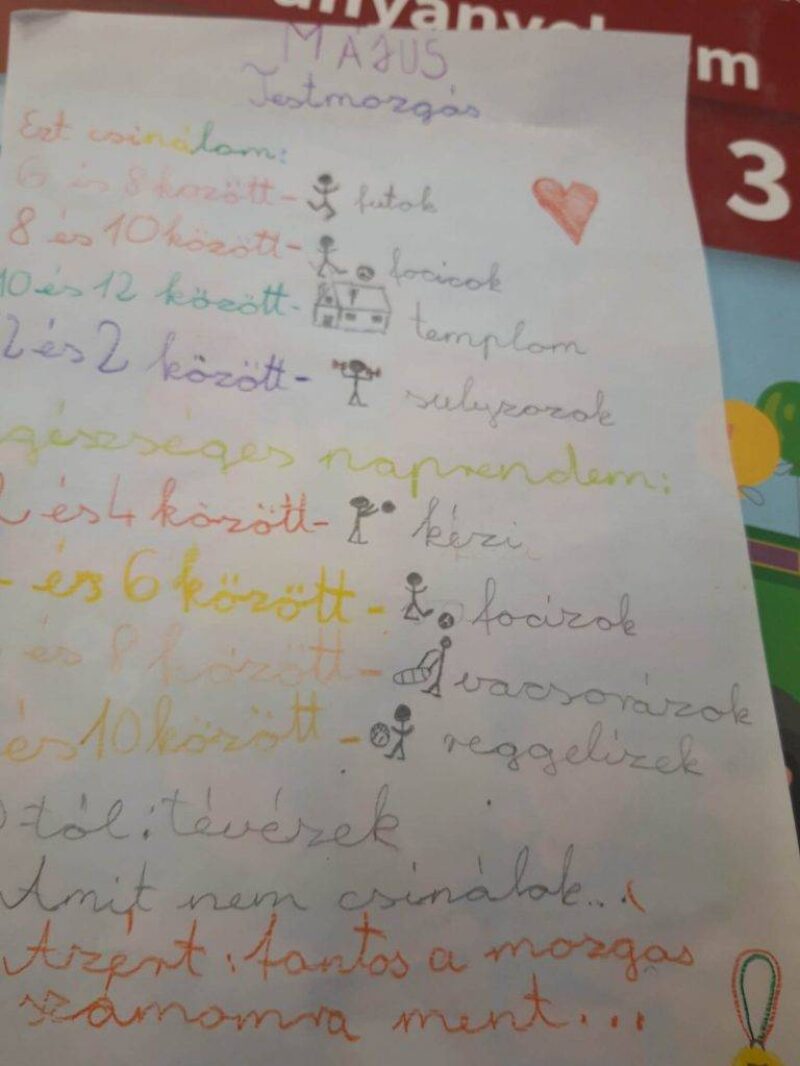 anyanyel m
3
MÁJUS
Testmozgás
Ezt csinálom:
6 és 8 között- futok
8 és 10 között- focizok
10 és 12 között- templom
2 és 2 között- sulyzozok
gészséges naprendem:
és 4 között- kézi
és 6 között- focizok
és 8 között- vacsorázok
és 10 között- reggelizek
-tól: tévézek
Amit nem csinálok...
Azért fontos a mozgas
számomra ment...